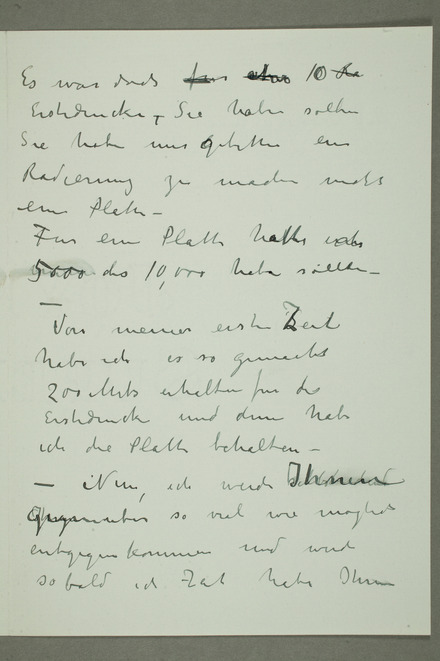 Es war doch für 10
Erstdrucke, Sie haben sollen
Sie haben mich gebeten eine
Radierung zu machen nicht
eine Platte –
Für eine Platte hatte ich
5000 das 10,000 haben sollen –
–
Von meiner ersten Zeit
habe ich es so gemacht
200 Mks erhalten für die
Erstdrucke und dann habe
ich die Platte behalten –
– Nun, ich werde Ihnen
so viel wie möglich
entgegenkommen und werde
sobald ich Zeit habe Ihnen